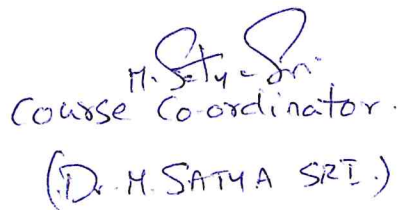 M. Saty-Sri
Course Co-ordinator.
(Dr. M. SATYA SRI.)